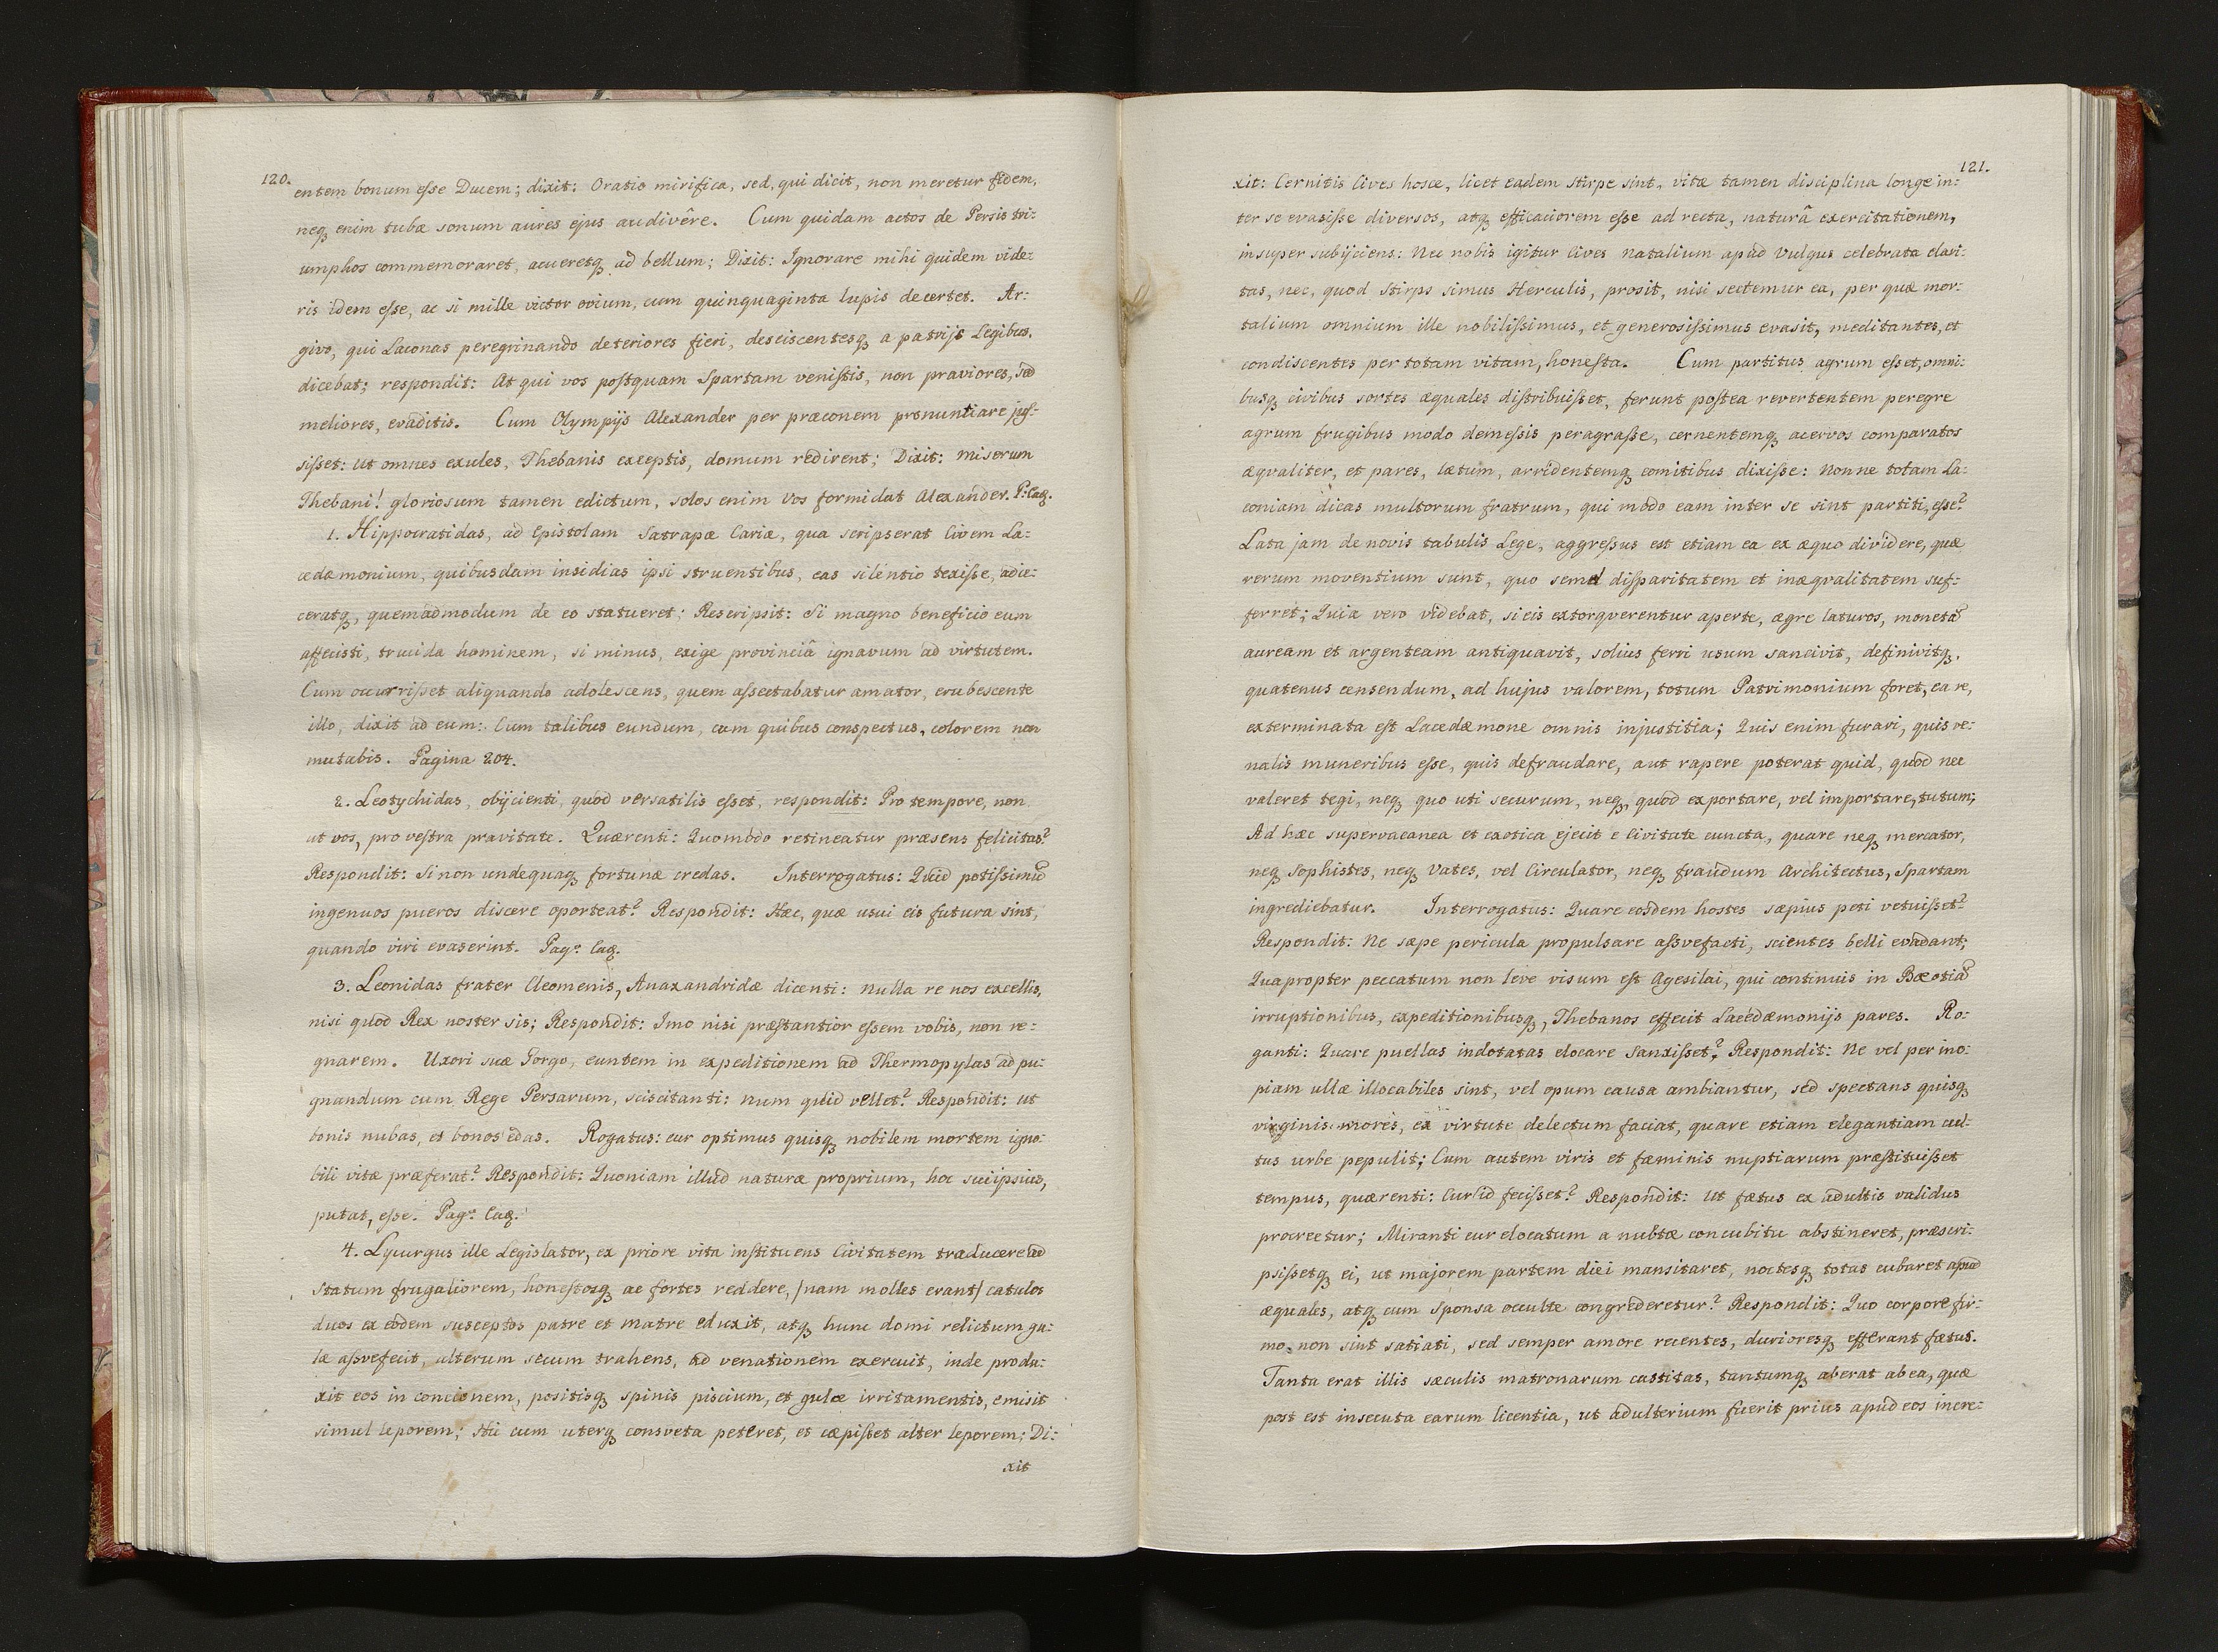 120.
entem bonum eſse Ducem; dixit: Oratio mirifica, sed, qui dicit, non meretur fidem,
neq₃ enim tubæ sonum aures ejus audivêre. Cum quidam actos de Persis tri:
umphos commemoraret, acueretq₃ ad bellum; Dixit: Ignorare mihi quidem vide:
ris idem eſse, ac si mille victor ovium, cum quinquaginta lupis decertet. Ar:
givo, qui Laconas peregrinando deteriores fieri, desciscentesq₃ a patrijs Legibus,
dicebat; respondit: At qui vos poſtquam Spartam veniſtis, non praviores, sed
meliores, evaditis. Cum Olympijs Alexander per præconem pronuntiare juſ:
siſset: ut omnes exules, Thebanis exceptis, domum redirent; Dixit: miserum
Thebani! gloriosum tamen edictum, solos enim vos formidat Alexander. P: Eaq₃.
1. Hippocratidas, ad Epistolam Satrapæ Cariæ, qua scripserat Civem La:
cedæmonium, quibusdam insidias ipsi struentibus, eas silentio texiſse, adie:
ceratq₃, quemadmodum de eo statueret; Rescripsit: Si magno beneficio eum
affecisti, trucida hominem, si minus, exige provinciâ ignavum ad virtutem.
Cum occurriſset aliquando adolescens, quem aſsectabatur amator, erubescente
illo, dixit ad eum: Cum talibus eundum, cum quibus conspectus, colorem non
mutabis. Pagina 204.
2. Leotychidas, obijcienti, quod versatilis eſset, respondit: Pro tempore, non
ut vos, pro veſtra pravitate. Quærenti: Quomodo retineatur præsens felicitas?
Respondit: Si non undequaq₃ fortunæ credas. Interrogatus: Quid potiſsimu͠
ingenuos pueros discere oporteat? Respondit: Hæc, quæ usui eis futura sint,
quando viri evaserint. Pagᵃ Eaq₃.
3. Leonidas frater Cleomenis, Anaxandridæ dicenti: nulla re nos excellis,
nisi quod Rex noster sis; Respondit: Imo nisi præſtantior eſsem vobis, non re:
gnarem. Uxori suæ Gorgo, euntem in expeditionem ad Thermopylas ad pu:
gnandum cum Rege Persarum, sciscitanti: num quid vellet? Respondit: ut
bonis nubas, et bonos edas. Rogatus: cur optimus quisq₃ nobilem mortem igno:
bili vitæ præferat? Respondit: Quoniam illud naturæ proprium, hoc suiipsius,
putat, eſse. Pagᵃ Eaq₃.
4. Lycurgus ille Legislator, ex priore vita inſtituens Civitatem traducere ad
statum frugaliorem, honeſtosq₃ ac fortes reddere, /nam molles erant/ catulos
duos ex eodem susceptos patre et matre eduxit, atq₃ hunc domi relictum gu:
læ aſsvefecit, alterum secum trahens, ad venationem exercuit, inde produ:
xit eos in concionem, positisq₃ spinis piscium, et gulæ irritamentis, emisit
simul leporem; Hii cum uterq₃ consveta peteret, et cæpiſset alter leporem; Di:
xit
121.
xit: Cernitis Cives hosce, licet eadem stirpe sint, vitæ tamen disciplina longe in:
ter se evasiſse diversos, atq₃ efficaciorem eſse ad recta, naturâ exercitationem,
insuper subijciens: Nec nobis igitur Cives natalium apud Vulgus celebrata clari:
tas, nec, quod Stirps simus Herculis, prosit, nisi sectemur ea, per quæ mor:
talium omnium ille nobiliſsimus, et generosiſsimus evasit, meditantes, et
condiscentes per totam vitam, honeſta. Cum partitus agrum eſset, omni:
busq₃ civibus sortes æquales diſtribuiſset, ferunt poſtea revertentem peregre
agrum frugibus modo demeſsis peragraſse, cernentemq₃ acervos comparatos
æqvaliter, et pares, lætum, arridentemq₃ comitibus dixiſse: Nonne totam La:
coniam dicas multorum fratrum, qui modo eam inter se sint partiti, eſse?
Lata jam de novis tabulis Lege, aggreſsus est etiam ea ex æquo dividere, quæ
rerum moventium sunt, quo semel diſparitatem et inæqvalitatem suf:
ferret; Quia vero videbat, si eis extorqverentur aperte, ægre laturos, moneta͠
auream et argenteam antiquavit, solius ferri usum sancivit, definivitq₃,
quatenus censendum, ad hujus valorem, totum Patrimonium foret, ea re,
exterminata eſt Lacedæmone omnis injustitia; Quis enim furari, quis ve:
nalis muneribus eſse, quis defraudare, aut rapere poterat quid, quod nec
valeret tegi, neq₃ quo uti securum, neq₃ quod exportare, vel importare, tutum;
Ad hæc supervacanea et exotica ejecit e Civitate cuncta, quare neq₃ mercator,
neq₃ Sophistes, neq₃ Vates, vel Circulator, neq₃ fraudum Architectus, Spartam
ingrediebatur. Interrogatus: Quare eosdem hostes sæpius peti vetuiſset?
Respondit: Ne sæpe pericula propulsare aſsvefacti, scientes belli evadant;
Quapropter peccatum non leve visum eſt Agesilai, qui continuis in Bæotia͠
irruptionibus, expeditionibusq₃, Thebanos effecit Lacedæmonijs pares. Ro:
ganti: Quare puellas indotatas elocare Sanxiſset? Respondit: Ne vel per ino:
piam ullæ illocabiles sint, vel opum causa ambiantur, sed spectans quisq₃
virginis mores, ex virtute delectum faciat, quare etiam elegantiam cul:
tus urbe pepulit; Cum autem viris et fæminis nuptiarum præſtituiſset
tempus, quærenti: Cur id feciſset? Respondit: Ut fætus ex adultis validus
procreetur; Miranti cur elocatum a nubtæ concubitu abstineret, præscri:
psiſsetq₃ ei, ut majorem partem diei mansitaret, noctesq₃ totas cubaret apud
æquales, atq₃ cum Sponsa occulte congrederetur? Respondit: Quo corpore fir:
mo, non sint satiati, sed semper amore recentes, durioresq₃ efferant fætus.
Tanta erat illis sæculis matronarum castitas, tantumq₃ aberat ab ea, quæ
post est insecuta earum licentia, ut adulterium fuerit prius apud eos incre: